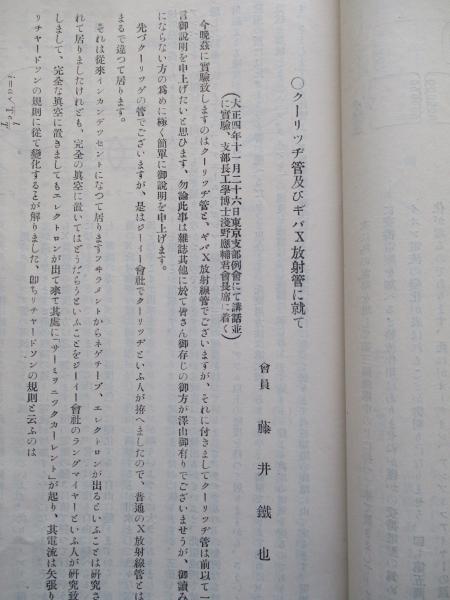 〇クーリッヂ管及びギバX放射管に就て
(大正四年十一月二十六日東京支部例會にて講話並
に實驗、支部長工學博士淺野應輔君會長席に着く)
會員 藤井鐵也
今晩玆に實驗致しますのはクーリッヂ管と、ギバX放射線管でございますが、それに付きましてクーリッヂ管は前以て一
言御說明を申上げたいと思ひます、勿論此事は雜誌其他に於て皆さん御存じの御方が澤山御有りでございませうが、御讀み
にならない方の爲めに極く簡單に御說明を申上げます。
先づクーリッヂの管でございますが、是はジーイー會社でクーリッヂといふ人が拵へましたので、普通のX放射線管とは
まるで違つて居ります。
それは從來インカンデッセントになつて居りますフヰラメントからネゲチーブ、エレクトロンが出るといふことは研究さ
れて居りましたけれども、完全の眞空に置いてはどうだらうといふことをジーイー會社のラングマイヤーといふ人が研究致
しまして、完全な眞空に置きましてもエレクトロンが出て來て其處に「サーミヲニックカーレント」が起り、其電流は矢張り
リチャードソンの規則に從て變化することが解りました、卽ちリチャードソンの規則と云ふのは